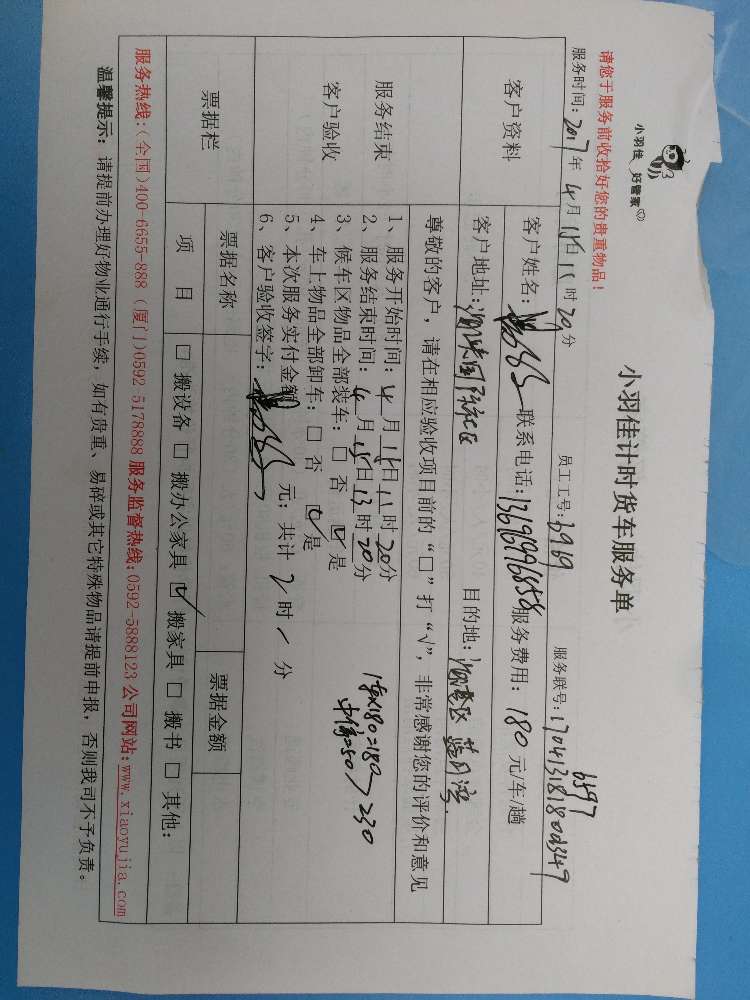 小羽佳 好管家
小羽佳计时货车服务单
请您于服务前收拾好您的贵重物品！
服务时间：2017年4月15日11时20分 员工工号：6969 服务联号：
6597
客户资料
客户姓名： 联系电话： 服务费用：180元/车/趟
客户地址： 目的地： 蓝月湾
服务结束
客户验收
尊敬的客户，请在相应验收项目前的“□”打“√”，非常感谢您的评价和意见
1、服务开始时间：4月15日11时20分
2、服务结束时间：4月15日13时20分
3、候车区物品全部装车：□ 否 ☑ 是
4、车上物品全部卸车：□ 否 ☑ 是
5、本次服务实付金额 元；共计 2 时 / 分
6、客户验收签字：
1车×180=180
中停=50
230
票据栏
票据名称 票据金额
项 目 □ 搬设备 □ 搬办公家具 ☑ 搬家具 □ 搬书 □ 其他：
服务热线：(全国)400-6655-888 (厦门)0592 5178888 服务监督热线：0592-5888123 公司网站：www.xiaoyujia.com
温馨提示：请提前办理好物业通行手续，如有贵重、易碎或其它特殊物品请提前申报，否则我司不予负责。